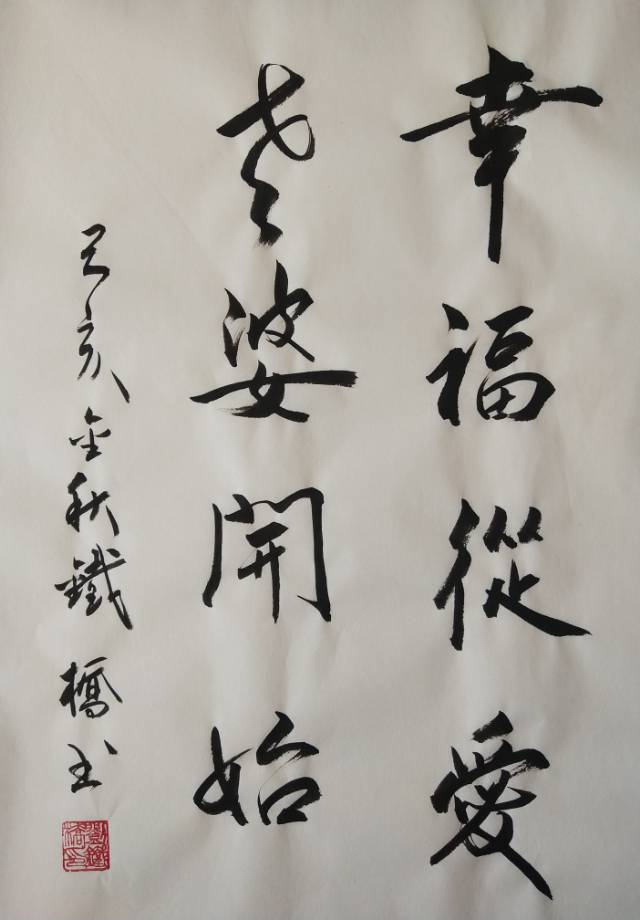 幸福從愛
老婆開始
己亥金秋鐵橋书